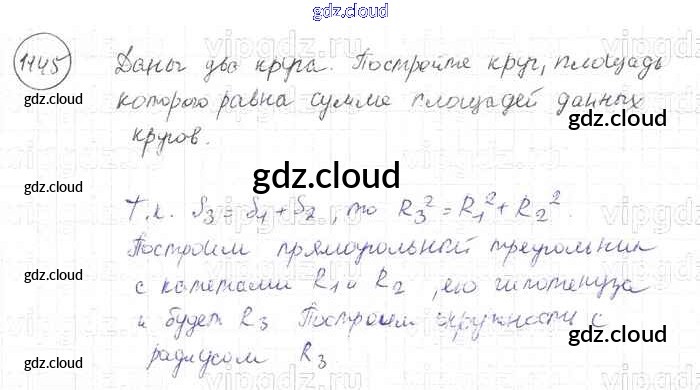 gdz.cloud
1145 Даны два круга. Постройте круг, площадь
которого равна сумме площадей данных
кругов.
gdz.cloud
gdz.cloud
gdz.cloud
gdz.cloud
Т.к. S₃ = S₁ + S₂, то R₃² = R₁² + R₂².
Построим прямоугольный треугольник
с катетами R₁ и R₂, его гипотенуза
и будет R₃ Построим окружность с
радиусом R₃
gdz.cloud
gdz.cloud
gdz.cloud
gdz.cloud